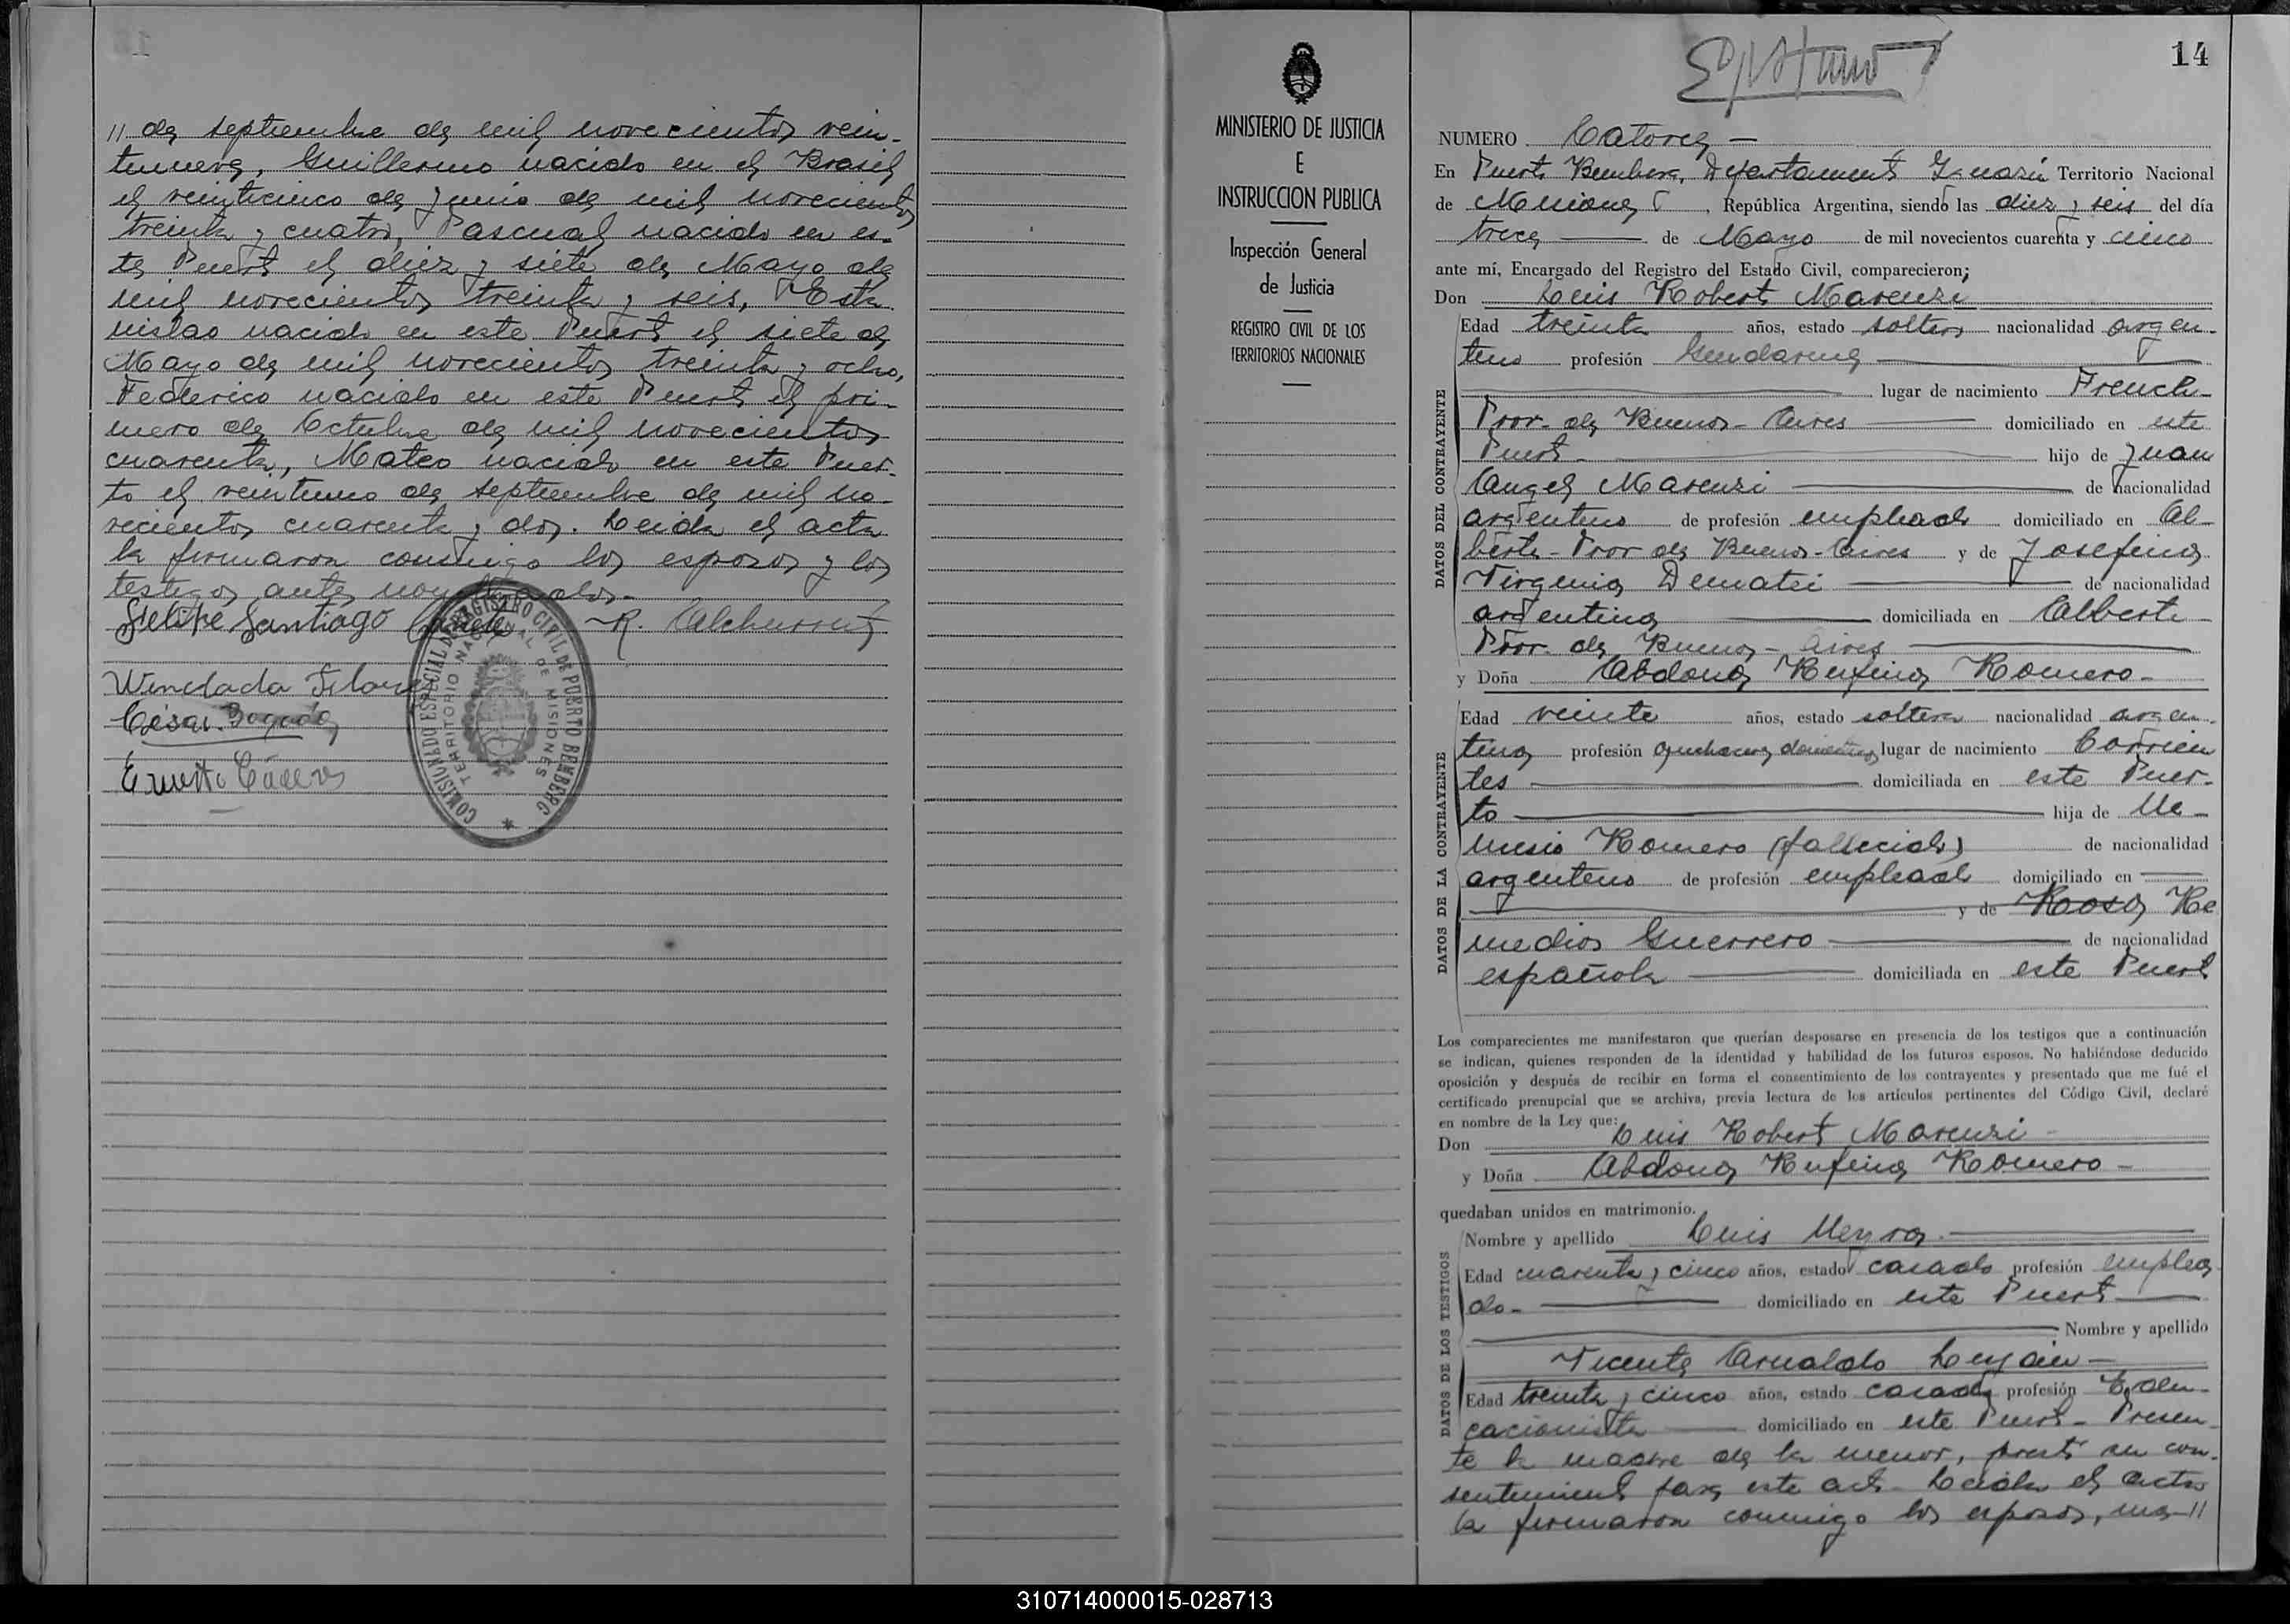 // de septiembre de mil novecientos vein-
tinueve, Guillermo nacido en el Brasil
el veinticinco de Junio de mil novecientos
treinta y cuatro, Pascual nacido en es-
te Puerto el diez y siete de Mayo de
mil novecientos treinta y seis, Esta
nislao nacido en este Puerto el siete de
Mayo de mil novecientos treinta y ocho,
Federico nacido en este Puerto el pri-
mero de Octubre de mil novecientos
cuarenta, Mateo nacido en este Puer-
to el veintiuno de septiembre de mil no-
vecientos cuarenta y dos. Leida el acta
la firmaron conmigo los esposos y los
testigos antes nombrados.-
Felipe Santiago
R.
COMISIONADO ESPECIAL DEL REGISTRO CIVIL DE PUERTO BEMBERG
TERRITORIO NACIONAL DE MISIONES
César Bogado
Ernesto
MINISTERIO DE JUSTICIA
E
INSTRUCCION PUBLICA
Inspección General
de Justicia
REGISTRO CIVIL DE LOS
TERRITORIOS NACIONALES
14
NUMERO Catorce —
En Puerto Bemberg, Departamento Iguazú Territorio Nacional
de Misiones, República Argentina, siendo las diez y seis del día
trece — de Mayo de mil novecientos cuarenta y cinco
ante mí, Encargado del Registro del Estado Civil, comparecieron;
Don Luis Roberto Marenzi
DATOS DEL CONTRAYENTE
Edad treinta años, estado soltero nacionalidad argen-
tino profesión Gendarme —
lugar de nacimiento French-
Prov. de Buenos-Aires — domiciliado en este
Puerto- — hijo de Juan
Angel Marenzi — de nacionalidad
argentino de profesión empleado domiciliado en Al-
berti-Prov de Buenos-Aires y de Josefina
Virginia Dematei — de nacionalidad
argentina — domiciliada en Alberti-
Prov. de Buenos-Aires —
y Doña Abdona Rufina Romero-
DATOS DE LA CONTRAYENTE
Edad veinte años, estado soltera nacionalidad argen-
tina profesión quehaceres domésticos lugar de nacimiento Corrien
tes — domiciliada en este Puer-
to — hija de Ne-
mesio Romero (fallecido) de nacionalidad
argentino de profesión empleado domiciliado en —
— y de Rosa Re
medios Guerrero — de nacionalidad
española — domiciliada en este Puerto
Los comparecientes me manifestaron que querían desposarse en presencia de los testigos que a continuación
se indican, quienes responden de la identidad y habilidad de los futuros esposos. No habiéndose deducido
oposición y después de recibir en forma el consentimiento de los contrayentes y presentado que me fué el
certificado prenupcial que se archiva, previa lectura de los artículos pertinentes del Código Civil, declaré
en nombre de la Ley que:
Don Luis Roberto Marenzi-
y Doña Abdona Rufina Romero-
quedaban unidos en matrimonio.
DATOS DE LOS TESTIGOS
Nombre y apellido Luis Neyra.-
Edad cuarenta y cinco años, estado casado profesión emplea
do- — domiciliado en este Puerto —
Nombre y apellido
Vicente Arnaldo —
Edad treinta y cinco años, estado casado profesión Edu-
cacionista — domiciliado en este Puerto- Presen-
te la madre de la menor, prestó su con-
sentimiento para este acto- Leida el acta
la firmaron conmigo los esposos, ma-//
310714000015-028713